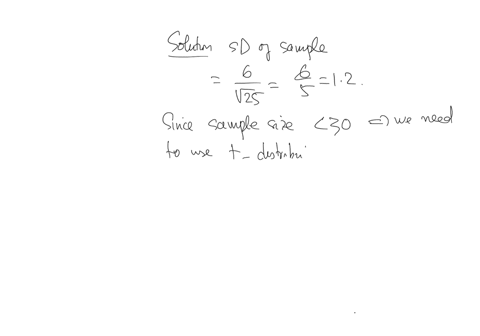 Solution SD of sample
= 6/√25 = 6/5 = 1.2.
Since sample size < 30 ⇒ we need
to use t-distribu